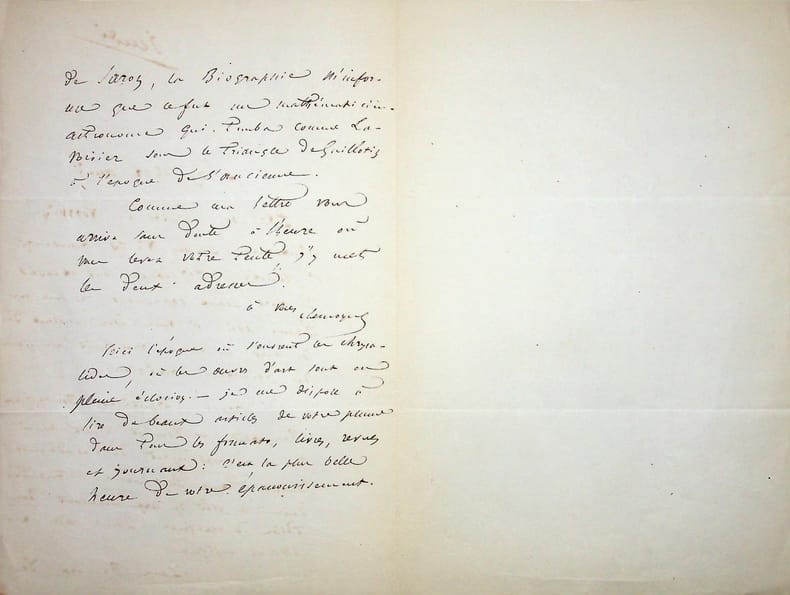 de Saron, la Biographie m'infor-
ma que ce fut un mathématicien-
astronome qui tomba comme La-
voisier sous le triangle de Guillotin
à l'époque de l'ancienne.
Comme ma lettre vous
arriva sans doute à l'heure où
vous levez votre tente j'y mets
les deux adresses.
à vous
Voici l'époque où s'ouvrent les chrysa-
lides, où les œuvres d'art sont en
pleine éclosion — je me dispose à
lire de beaux articles de votre plume
dans tous les formats, livres, revues
et journaux : c'est la plus belle
heure de votre épanouissement.